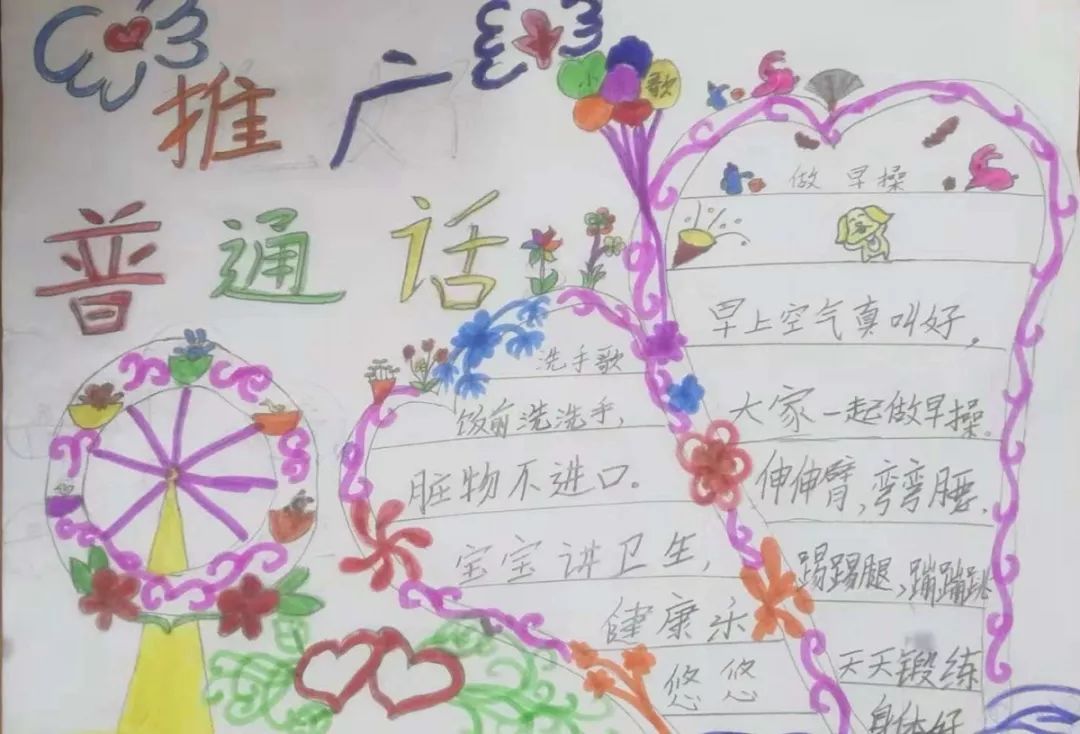 推广
普通话
小
歌
洗手歌
饭前洗洗手，
脏物不进口。
宝宝讲卫生，
健康乐
悠悠
做早操
早上空气真叫好，
大家一起做早操。
伸伸臂，弯弯腰，
踢踢腿，蹦蹦跳
天天锻练
身体好